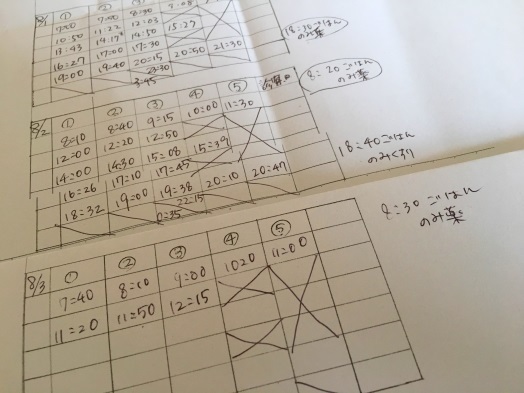 8/1 ① ② ③
7:00 7:00 8:30 8:08
10:50 11:22 12:03
13:43 14:17 14:50 15:27
16:27 17:00 17:30
19:00 19:40 20:15 20:50 21:30
18:30 ごはん
のみ薬
8/2 ① ② ③ ④ ⑤
8:10 8:40 9:15 10:00 11:30
12:00 12:20 12:50
14:00 14:30 15:08 15:39
16:26 17:10 17:45
18:32 19:00 19:38 20:10 20:47
22:15
8:20 ごはん
のみ薬
18:40 ごはん
のみぐすり
8/3 ① ② ③ ④ ⑤
7:40 8:10 9:00 1020 11:00
11:20 11:50 12:15
8:30 ごはん
のみ薬